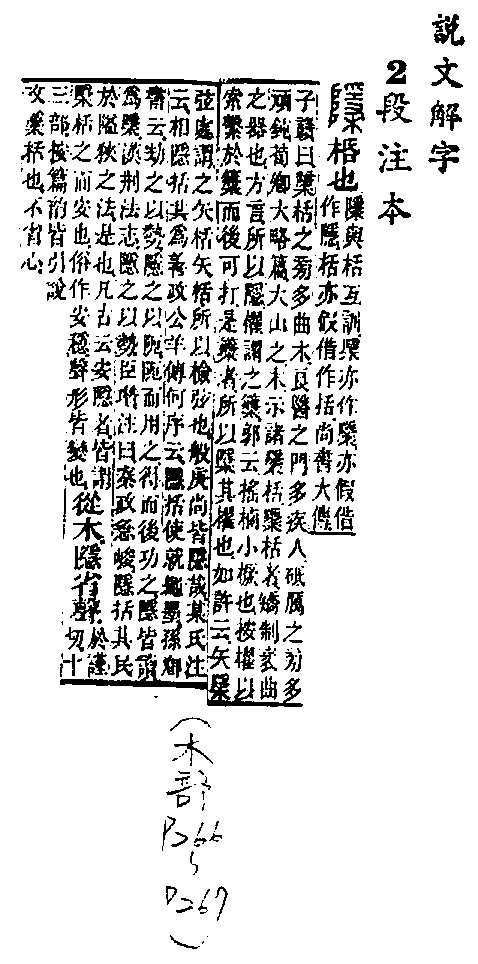 説文解字
2段注本
檃 栝也
檃與栝互訓檃亦作檃亦假借
作隱栝亦假借作括尚書大傳
子贛曰檃栝之旁多曲木良醫之門多疾人砥厲之旁多
頑鈍荀卿大略篇大山之木示諸檃栝檃栝者矯制衺曲
之器也方言所以隱櫂謂之䉁郭云搖樐小橛也按櫂以
索繫於䉁而後可打是䉁者所以檃其櫂也如許云矢檃
弦處謂之矢栝矢栝所以檢弦也般庚尚皆隱哉某氏注
云相隱括共爲善政公羊傳何序云隱括使就繩墨孫卿
書云劫之以勢隱之以阸阸而用之得而後功之隱皆讀
爲檃漢刑法志隱之以勢臣瓚注曰秦政急峻隱括其民
於隘狹之法是也凡古云安隱者皆謂
檃栝之而安也俗作安穩聲形皆變也
從木隱省聲
於謹
切十
三部按篇韵皆引說
文檃栝也不省心
(木部 P266~P267)